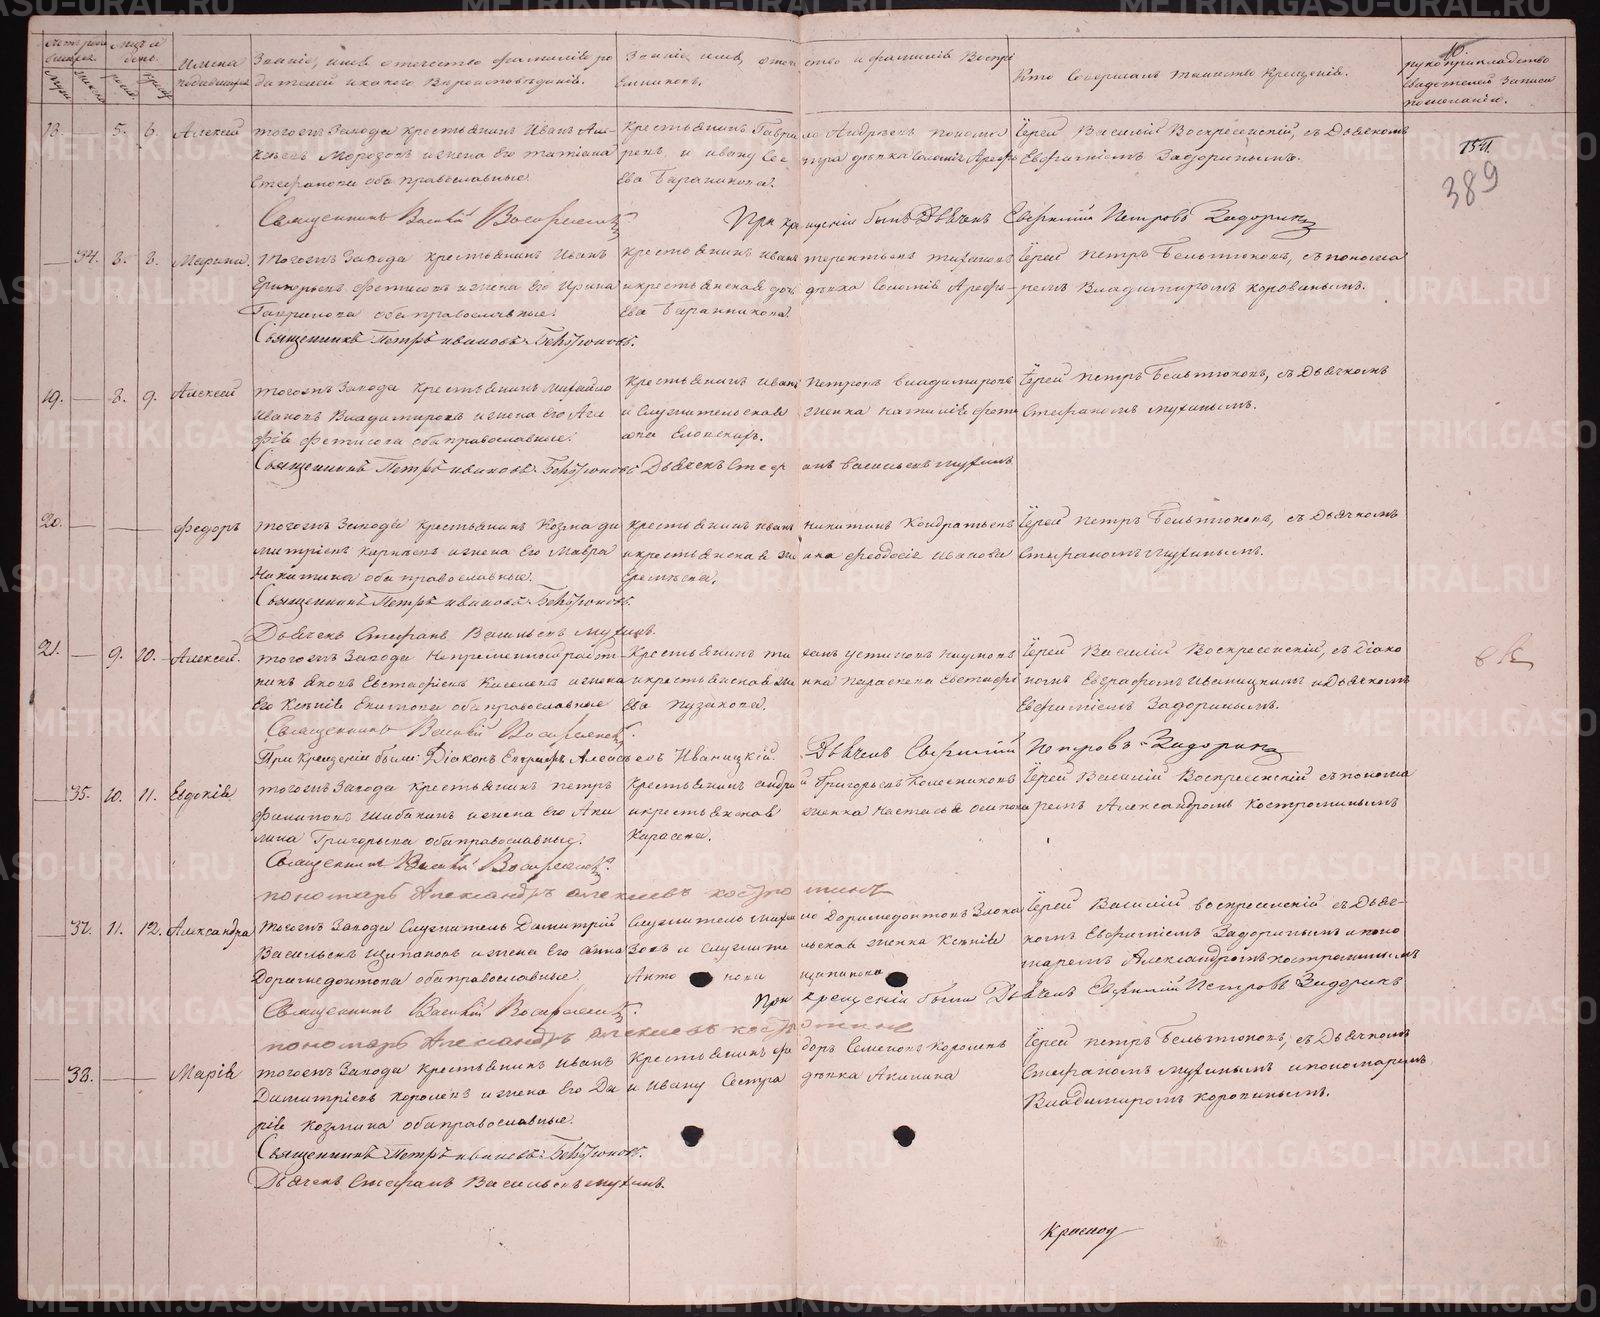 Имена родившихся
Званіе, имя, отчество и фамилія родителей и какого Вѣроисповѣданія.
Званіе, имя, отчество и фамилія Воспріемниковъ.
Кто Совершалъ таинство Крещенія.
рукоприкладство
свидѣтелей записи
по желанію.
389
18. — 5. 6. Алексій
тогожъ Завода крестьянинъ Иванъ Але-
ксѣевъ Морозовъ и жена его Татіана
Стефанова оба православные.
Крестьянинъ Гаврило Андрѣевъ
Ева Баранникова.
Іерей Василій Воскресенскій, съ Дьячкомъ
Евфиміемъ Задоринымъ.
Священникъ Василій Воскресенскій
При крещеніи былъ Дьячекъ Евфимій Петровъ Задоринъ
— 34. 8. 8. Марина.
тогожъ Завода крестьянинъ Иванъ
Григорьевъ Фетисовъ и жена его Ирина
Гаврилова оба православные.
крестьянинъ Иванъ Терентьевъ
и крестьянская дочь дѣвка Соломія Арефь-
ева Баранникова.
Іерей Петръ Бельтюковъ, съ понома
ремъ Владимиромъ Коровинымъ.
Священникъ Петръ Ивановъ Бельтюковъ.
19. — 8. 9. Алексій
тогожъ Завода крестьянинъ Михайло
Ивановъ Владимировъ и жена его Ага
фія Фетисова оба православные.
Крестьянинъ Иванъ Петровъ Владимировъ
и Служительская женка Наталія
Іерей Петръ Бельтюковъ, съ Дьячкомъ
Стефаномъ Мухинымъ.
Священникъ Петръ Ивановъ Бельтюковъ Дьячекъ Стефанъ Васильевъ Мухинъ
20. — — Федоръ
тогожъ Завода крестьянинъ Козма Ди
митріевъ Карповъ и жена его Мавра
Никитина оба православные.
крестьянинъ Иванъ Никитинъ Кондратьевъ
и крестьянская женка Феодосія Иванова
Еремѣева.
Іерей Петръ Бельтюковъ, съ Дьячкомъ
Стефаномъ Мухинымъ.
Священникъ Петръ Ивановъ Бельтюковъ.
Дьячекъ Стефанъ Васильевъ Мухинъ.
21. — 9. 10. Алексій.
тогожъ Завода Непремѣнный работ-
никъ Яковъ Евстафіевъ Киселевъ и жена
его Ксенія оба православные
Крестьянинъ Устиновъ Наумовъ
и крестьянская женка Параскева Евстафі
ева Пузакова.
Іерей Василій Воскресенскій, съ Діако
номъ Евграфомъ Иваницкимъ и Дьячкомъ
Евфиміемъ Задоринымъ.
Священникъ Василій Воскресенскій.
При Крещеніи были: Діаконъ Евграфъ Алексѣевъ Иваницкій. Дьячекъ Евфимій Петровъ Задоринъ
— 35. 10. 11. Евдокія
тогожъ Завода крестьянинъ Петръ
Филиповъ Шибакинъ и жена его Аки
лина Григорьева оба православные.
Крестьянинъ Андрей Григорьевъ Колесниковъ
и крестьянская женка Настасья Осипова
Карасева.
Іерей Василій Воскресенскій съ понома
ремъ Александромъ Костроминымъ
Священникъ Василій Воскресенскій.
пономарь Александръ Алексіевъ Костроминъ
— 37. 11. 12. Александра
тогожъ Завода Служитель Димитрій
Васильевъ Щипановъ и жена его Анна
Доримедонтова оба православные.
Служитель Михайло Доримедонтовъ Злока
зовъ и Служительская женка Ксенія
Антонова Щипанова
Іерей Василій Воскресенскій съ Дьяч-
комъ Евфиміемъ Задоринымъ и поно
маремъ Александромъ Костроминымъ
Священникъ Василій Воскресенскій.
При крещеніи были Дьячекъ Евфимій Петровъ Задоринъ
пономарь Александръ Алексіевъ Костроминъ
— 38. — — Марія
тогожъ Завода крестьянинъ Иванъ
Димитріевъ Королевъ и жена его Да
рія Козмина оба православные.
Крестьянинъ Федоръ Семеновъ Королевъ
и Ивану Сестра дѣвка Акилина
Іерей Петръ Бельтюковъ, съ Дьячкомъ
Стефаномъ Мухинымъ и пономаремъ
Владимиромъ Коровинымъ.
Священникъ Петръ Ивановъ Бельтюковъ.
Дьячекъ Стефанъ Васильевъ Мухинъ.
METRIKI.GASO-URAL.RU